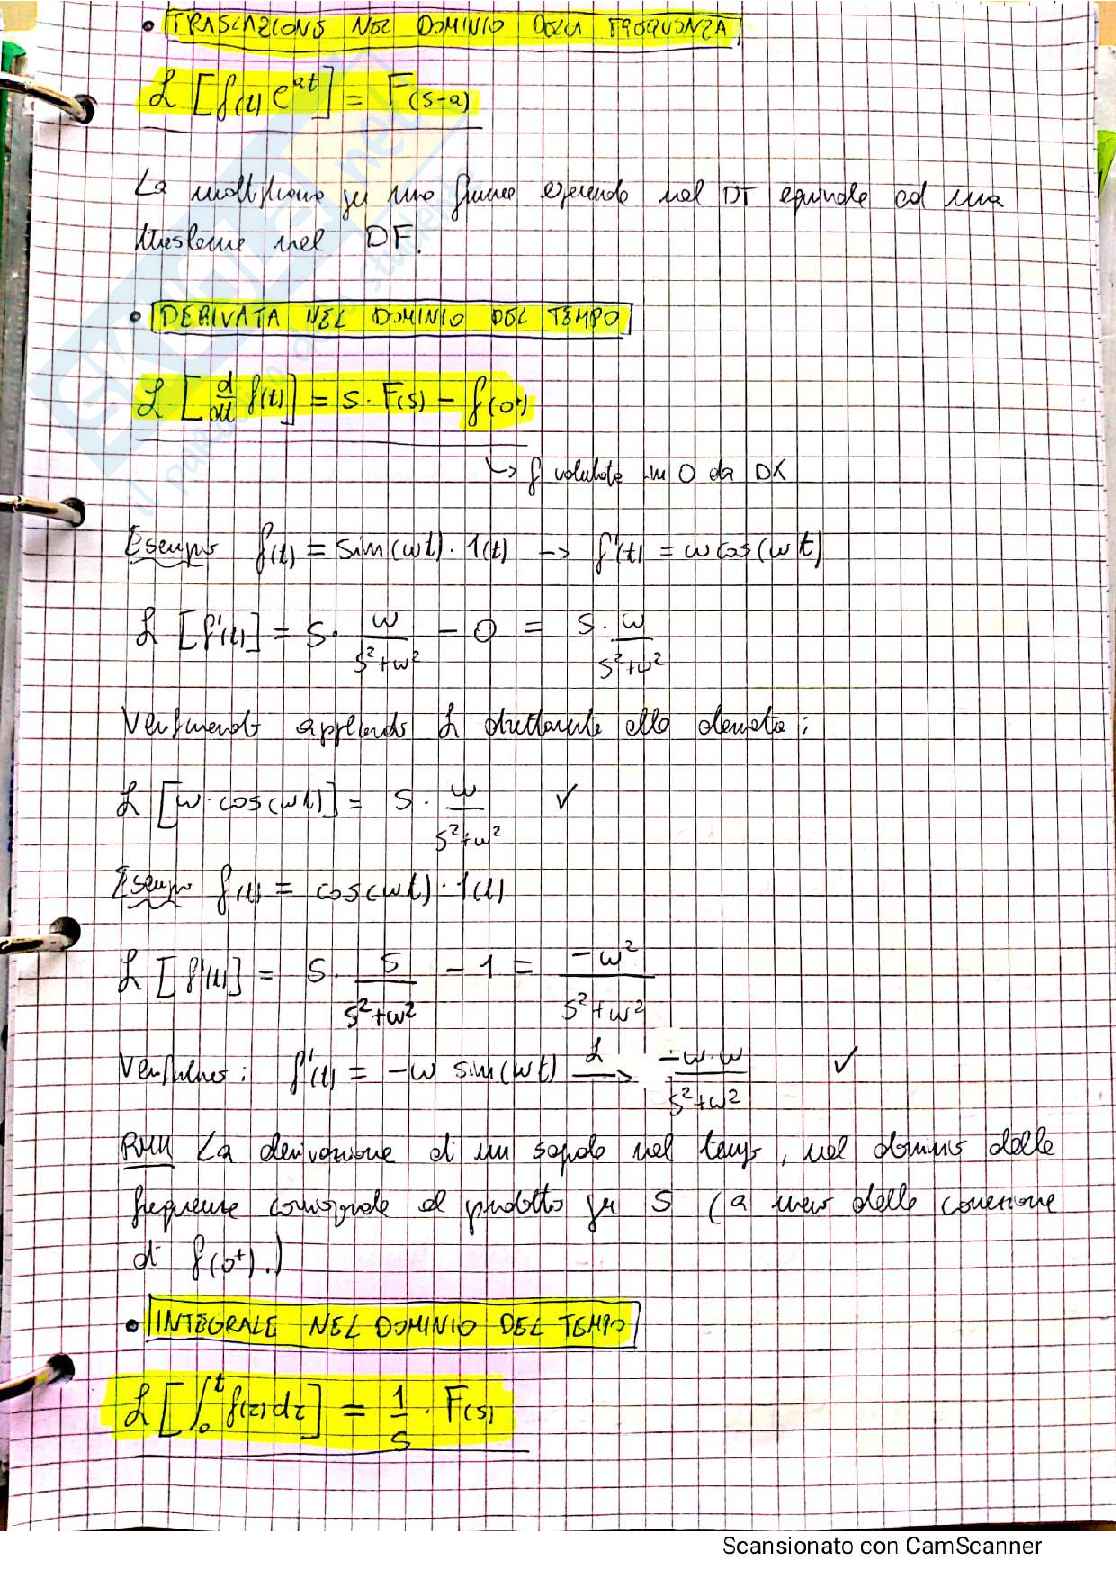 • TRASLAZIONE NEL DOMINIO DELLA FREQUENZA
ℒ [f(t) e^{at}] = F(s-a)
La moltiplicazione per una funzione esponenziale nel DT equivale ad una
traslazione nel DF.
• DERIVATA NEL DOMINIO DEL TEMPO
ℒ [d/dt f(t)] = s · F(s) - f(0⁺)
↳ f valutata in 0 da DX
Esempio f(t) = sin(ωt) · 1(t) → f'(t) = ω cos(ωt)
ℒ [f'(t)] = s · ω/(s²+ω²) - 0 = s · ω/(s²+ω²)
applicando ℒ direttamente alla derivata:
ℒ [ω · cos(ωt)] = s · ω/(s²+ω²) ✓
Esempio f(t) = cos(ωt) · 1(t)
ℒ [f'(t)] = s · s/(s²+ω²) - 1 = -ω²/(s²+ω²)
f'(t) = -ω sin(ωt) ℒ→ -ω·ω/(s²+ω²) ✓
La derivazione di un segnale nel tempo, nel dominio delle
frequenze corrisponde al prodotto per S (a meno della correzione
di f(0⁺).)
• INTEGRALE NEL DOMINIO DEL TEMPO
ℒ [∫₀ᵗ f(τ) dτ] = 1/s · F(s)
Scansionato con CamScanner